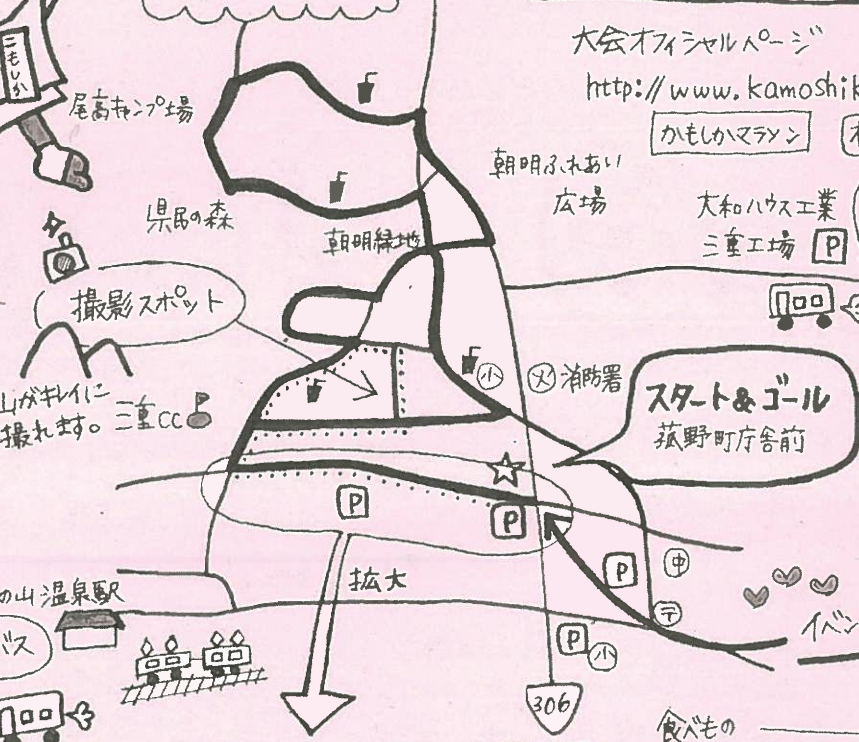 こもしか
大会オフィシャルページ
http://www.kamoshik
かもしかマラソン
尾高キャンプ場
朝明ふれあい
広場
県民の森
朝明緑地
大和ハウス工業
三重工場 P
撮影スポット
山がキレイに
撮れます。
三重CC
小
火 消防署
スタート&ゴール
菰野町庁舎前
P
P
P
中
拡大
の山温泉駅
〒
イベン
バス
P
小
306
食べもの